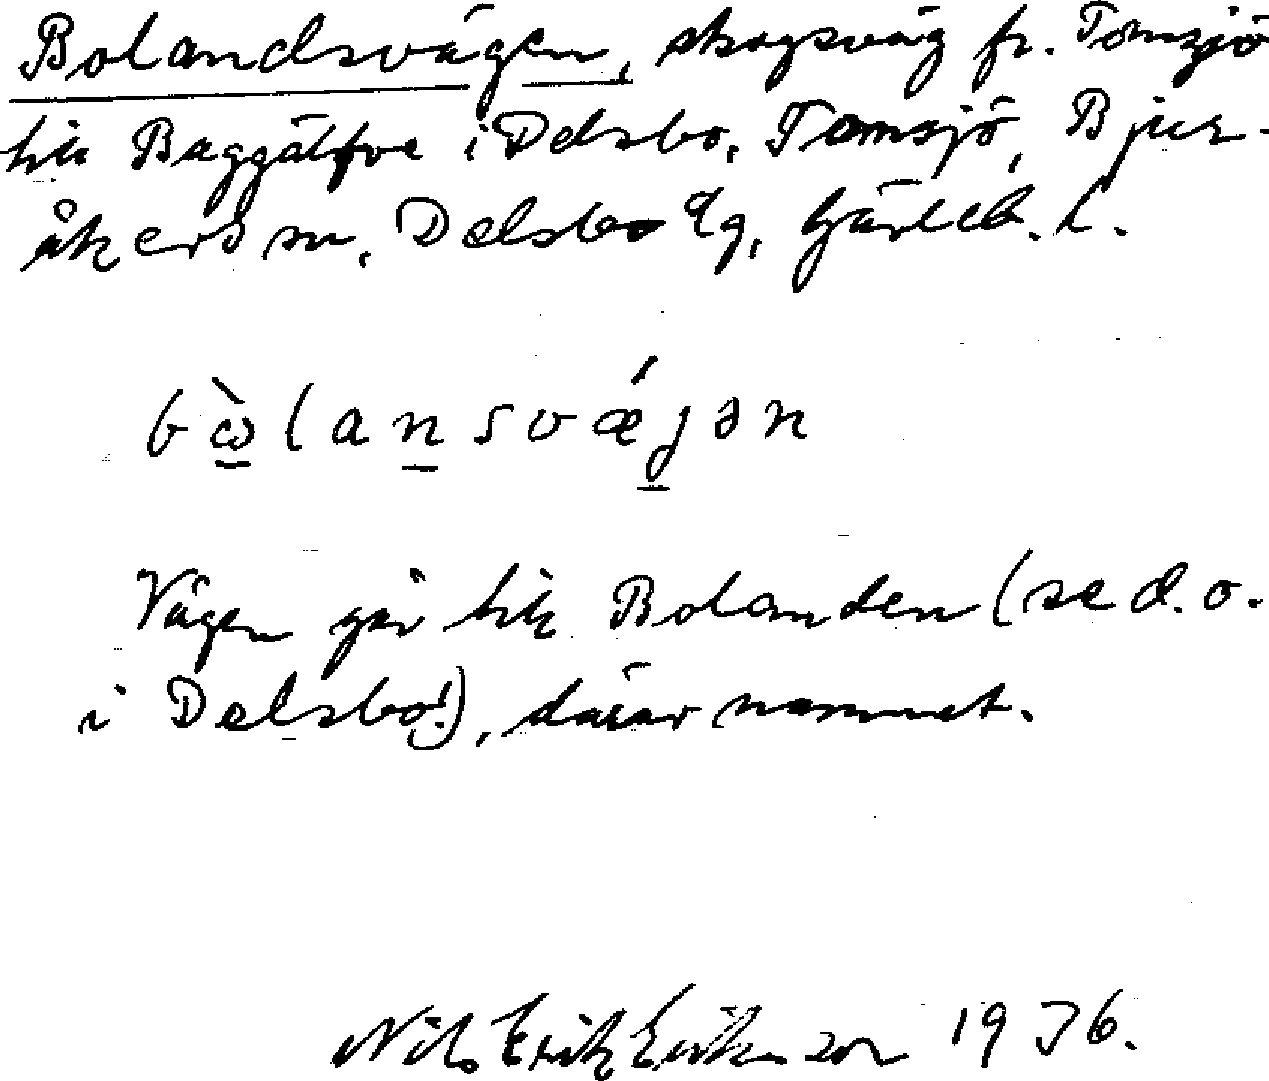 Bolandsvägen, skogsväg fr. Tomsjö
till Baggätfve i Delsbo, Tomsjö, Bjur-
åkers sn, Delsbo tg, Gävleb. l.
bὼlansvǽjən
Vägen går till Bolanden (se d. o.
i Delsbo!), därav namnet.
Nils Erik Eriksson 1936.